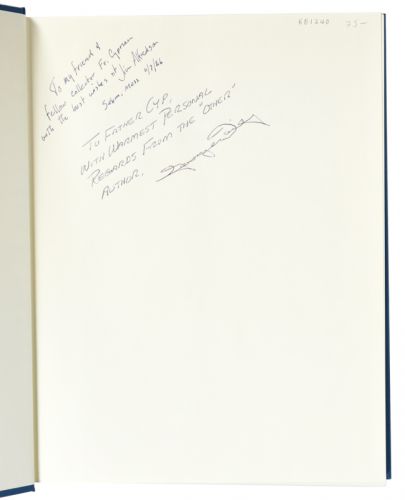 KE1240 75-
To my friend &
fellow collector Fr. Cyprian
with the best wishes of Jim Alfredson
Salem. Mass 4/7/86
To Father Cyp,
With Warmest Personal
Regards From the "Other"
Author.